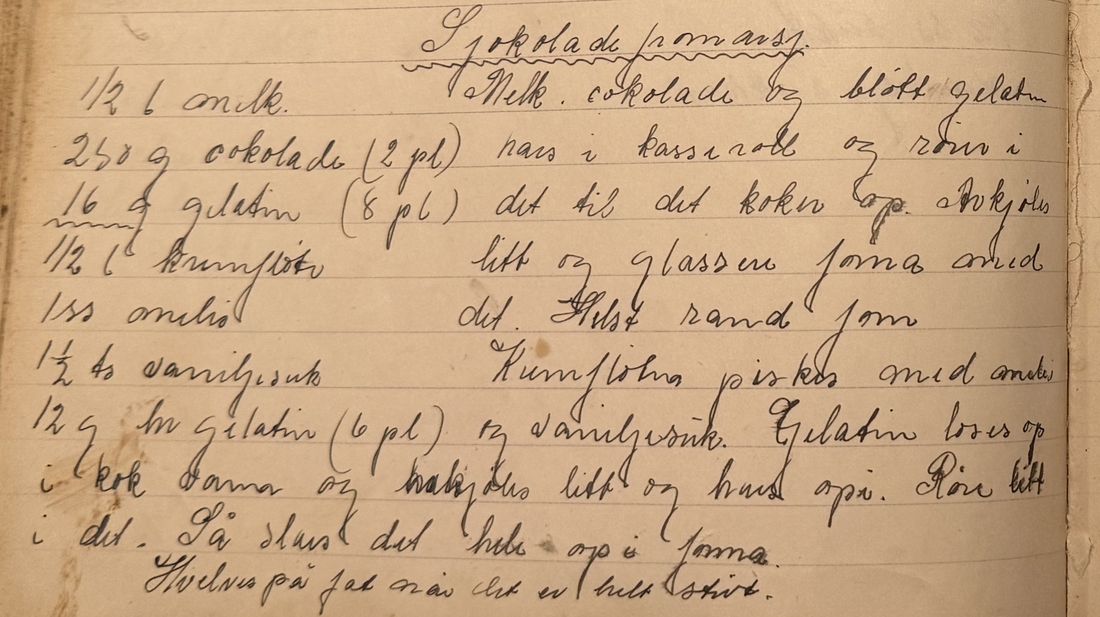 Sjokolade fromasj.
1/2 l melk. Melk. cokolade og bløtt gelatin
250 g cokolade (2 pl) haes i kasseroll og rører i
16 g gelatin (8 pl) det til det koker op. Avkjøles
1/2 l kremfløte litt og glassere forma med
1 ss melis det. Helst rand form
1 1/2 ts vaniljesuk Kremfløten piskes med melis
12 g hv gelatin (6 pl) og vaniljesuk. Gelatin løses op
i kok vann og avkjøles litt og haes opi. Røre litt
i det. Så slaes det hele op i forma.
Hvelves på fat når det er helt stivt.